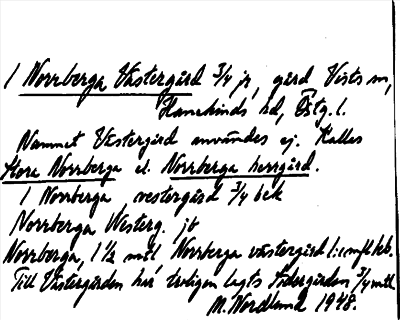 1 Norrberga Västergård 3/4 jr, gård Vists sn,
Hanekinds hd, Östg. l.
Namnet Västergård användes ej. Kallas
Stora Norrberga el. Norrberga herrgård.
1 Norrberga vestergård 3/4 hek
Norrberga Westerg. jb
Norrberga, 1 1/2 mtl Norrberga västergård l:1 mtl
Till Västergården har troligen lagts Södergården 3/4 mtl
M. Nordlund 1948.